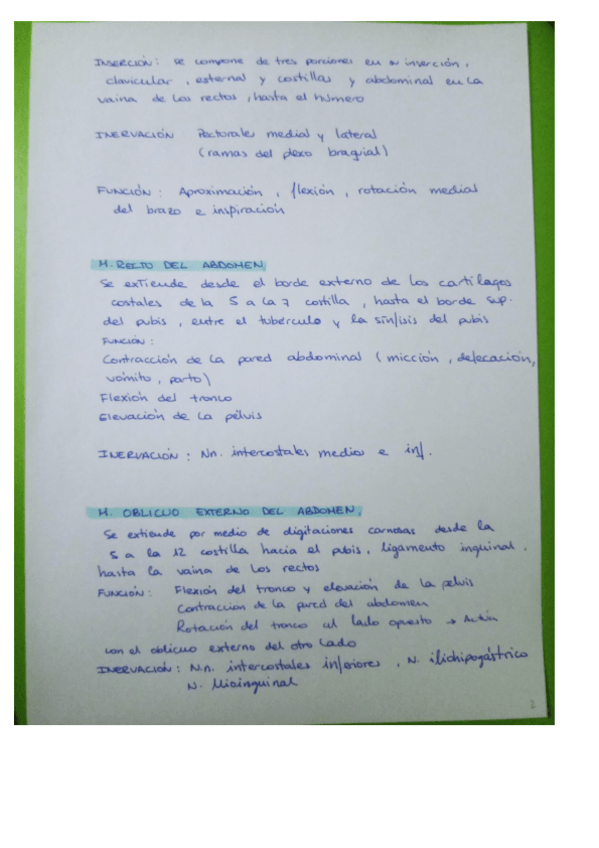 INSERCIÓN: se compone de tres porciones en su inserción,
clavicular, esternal y costillas y abdominal en la
vaina de los rectos, hasta el húmero
INERVACIÓN Pectorales medial y lateral
(ramas del plexo braquial)
FUNCIÓN: Aproximación, flexión, rotación medial
del brazo e inspiración
M. RECTO DEL ABDOMEN,
Se extiende desde el borde externo de los cartílagos
costales de la 5 a la 7 costilla, hasta el borde sup.
del pubis, entre el tubérculo y la sínfisis del pubis
FUNCIÓN:
Contracción de la pared abdominal (micción, defecación,
vómito, parto)
Flexión del tronco
Elevación de la pelvis
INERVACIÓN: Nn. intercostales medios e inf.
M. OBLICUO EXTERNO DEL ABDOMEN,
Se extiende por medio de digitaciones carnosas desde la
5 a la 12 costilla hacia el pubis, ligamento inguinal,
hasta la vaina de los rectos
FUNCIÓN: Flexión del tronco y elevación de la pelvis
Contracción de la pared del abdomen
Rotación del tronco al lado opuesto →
con el oblicuo externo del otro lado
INERVACIÓN: N.n. intercostales inferiores, N. iliohipogástrico
N. Ilioinguinal
2